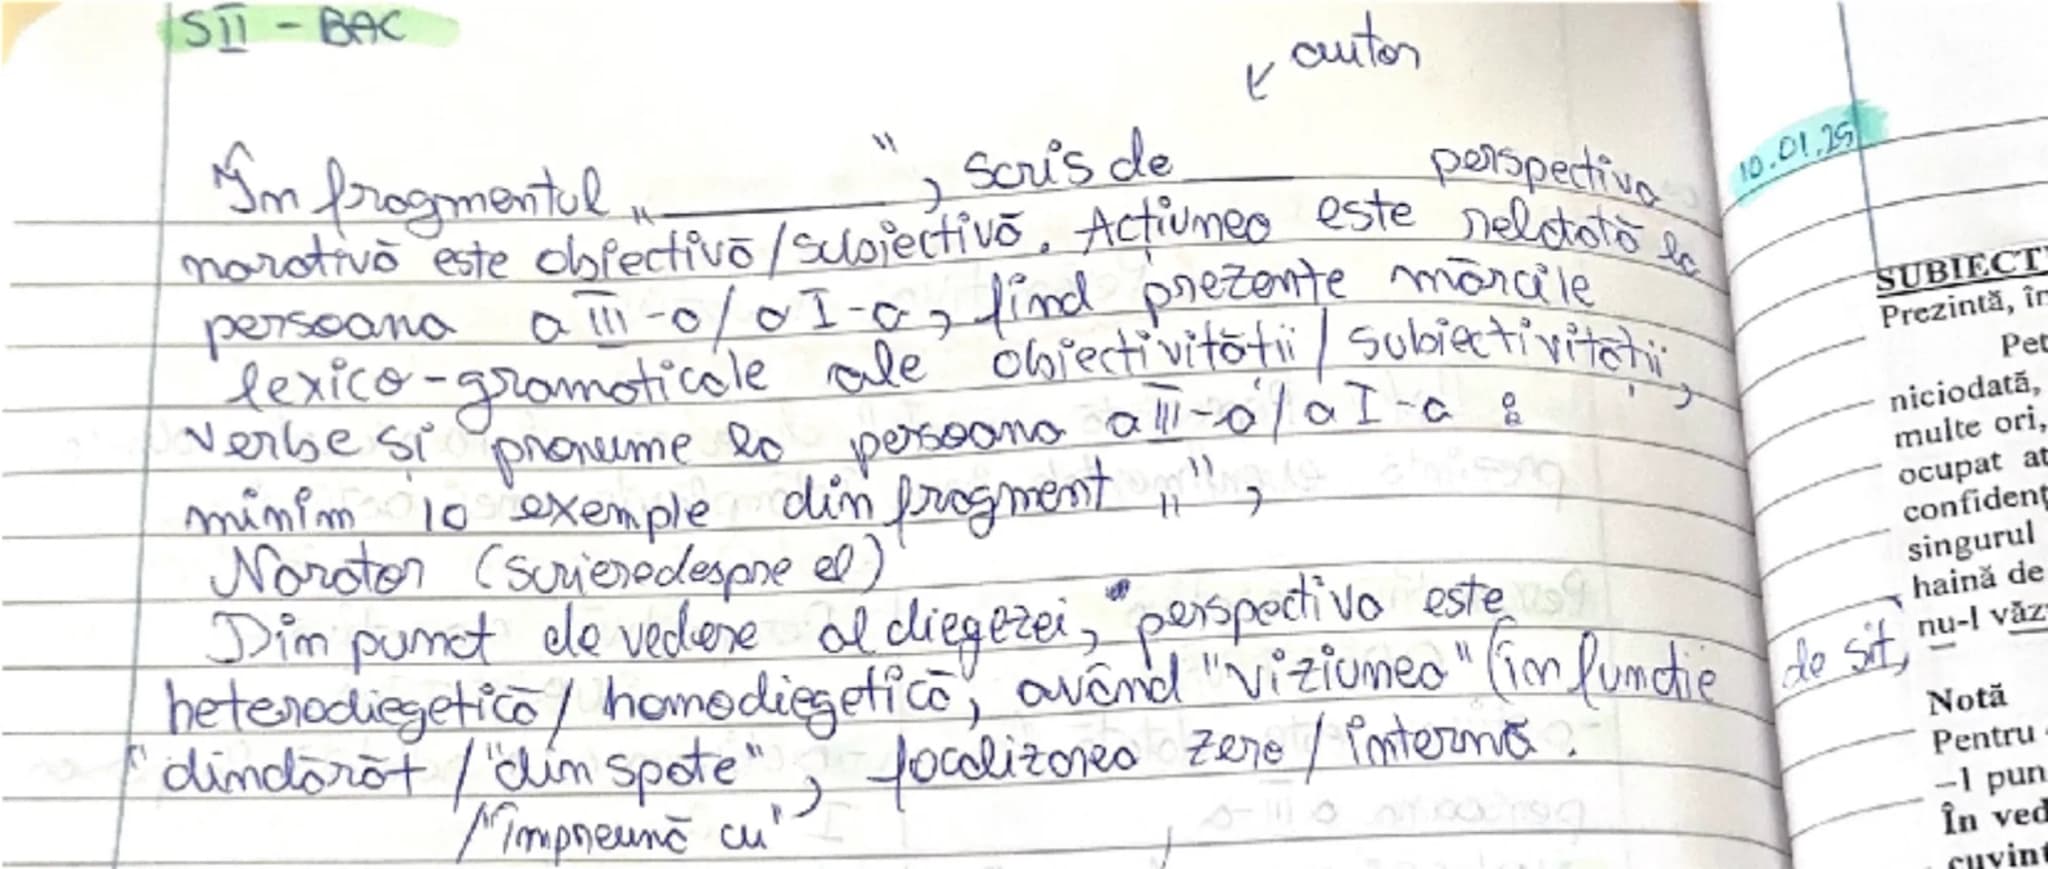 SII - BAC
autor
În fragmentul „__________", scris de ______ perspectiva
narativă este obiectivă/subiectivă. Acțiunea este relatată la
persoana a III-a/a I-a, fiind prezente mărcile
lexico-gramaticale ale obiectivității/subiectivității,
verbe și pronume la persoana a III-a/a I-a :
minim 10 exemple din fragment „",
Narator (scrieredespre el)
Din punct de vedere al diegezei, perspectiva este
heterodiegetică/homodiegetică, având "viziunea" (în funcție de sit,
"dindărăt/"din spate", focalizarea zero/internă.
/"împreună cu"
10.01.25
SUBIECT
Prezintă, în
Pet
niciodată,
multe ori,
ocupat at
confidenț
singurul
haină de
nu-l văz
Notă
Pentru
–1 pun
În ved
cuvint